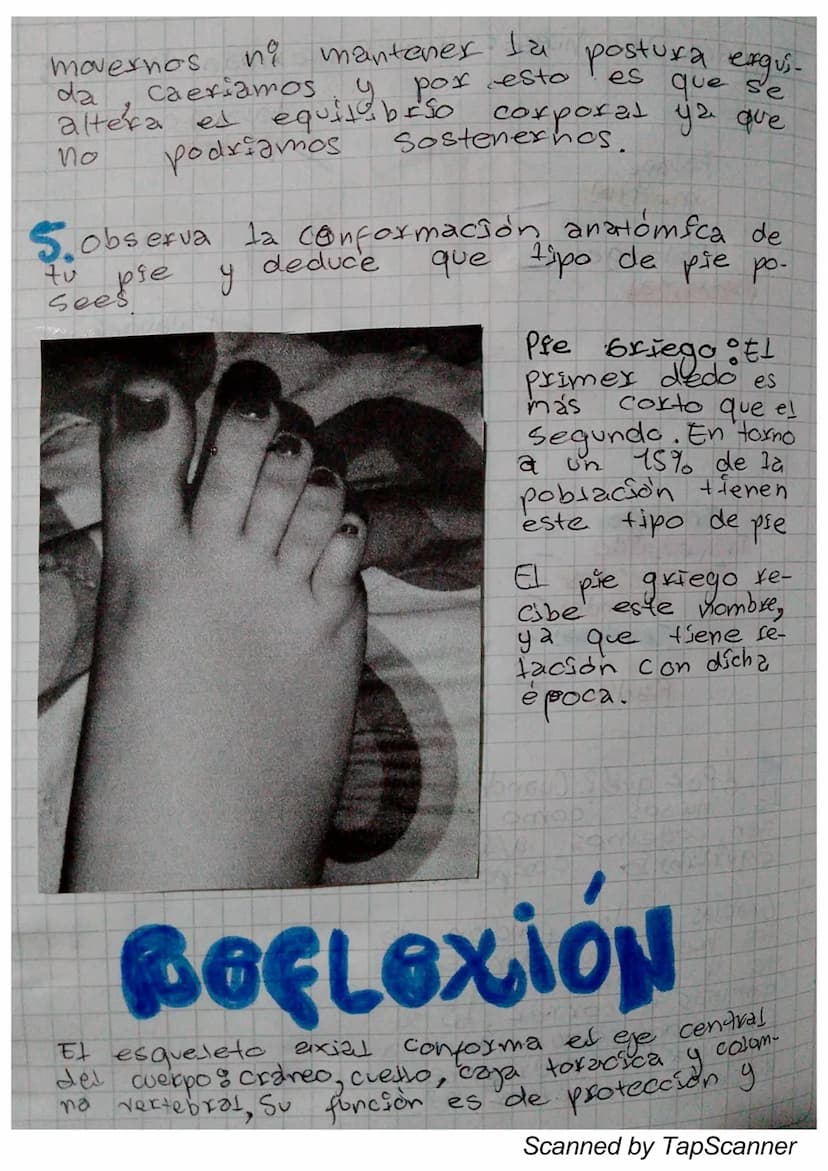 movernos ni mantener la postura ergui-
da, caeriamos y por esto es que se
altera el equilibrio corporal ya que
no podriamos sostenernos.
5. Observa la conformación anatómica de
tu pie y deduce que tipo de pie po-
sees.
Pie Griego: El
primer dedo es
más corto que el
segundo. En torno
a un 15% de la
población tienen
este tipo de pie
El pie griego re-
cibe este nombre,
ya que tiene re-
lación con dicha
época.
REFLEXIÓN
El esqueleto axial conforma el eje central
del cuerpo: craneo, cuello, caja toracica y colum-
na vertebral, su función es de protección y
Scanned by TapScanner